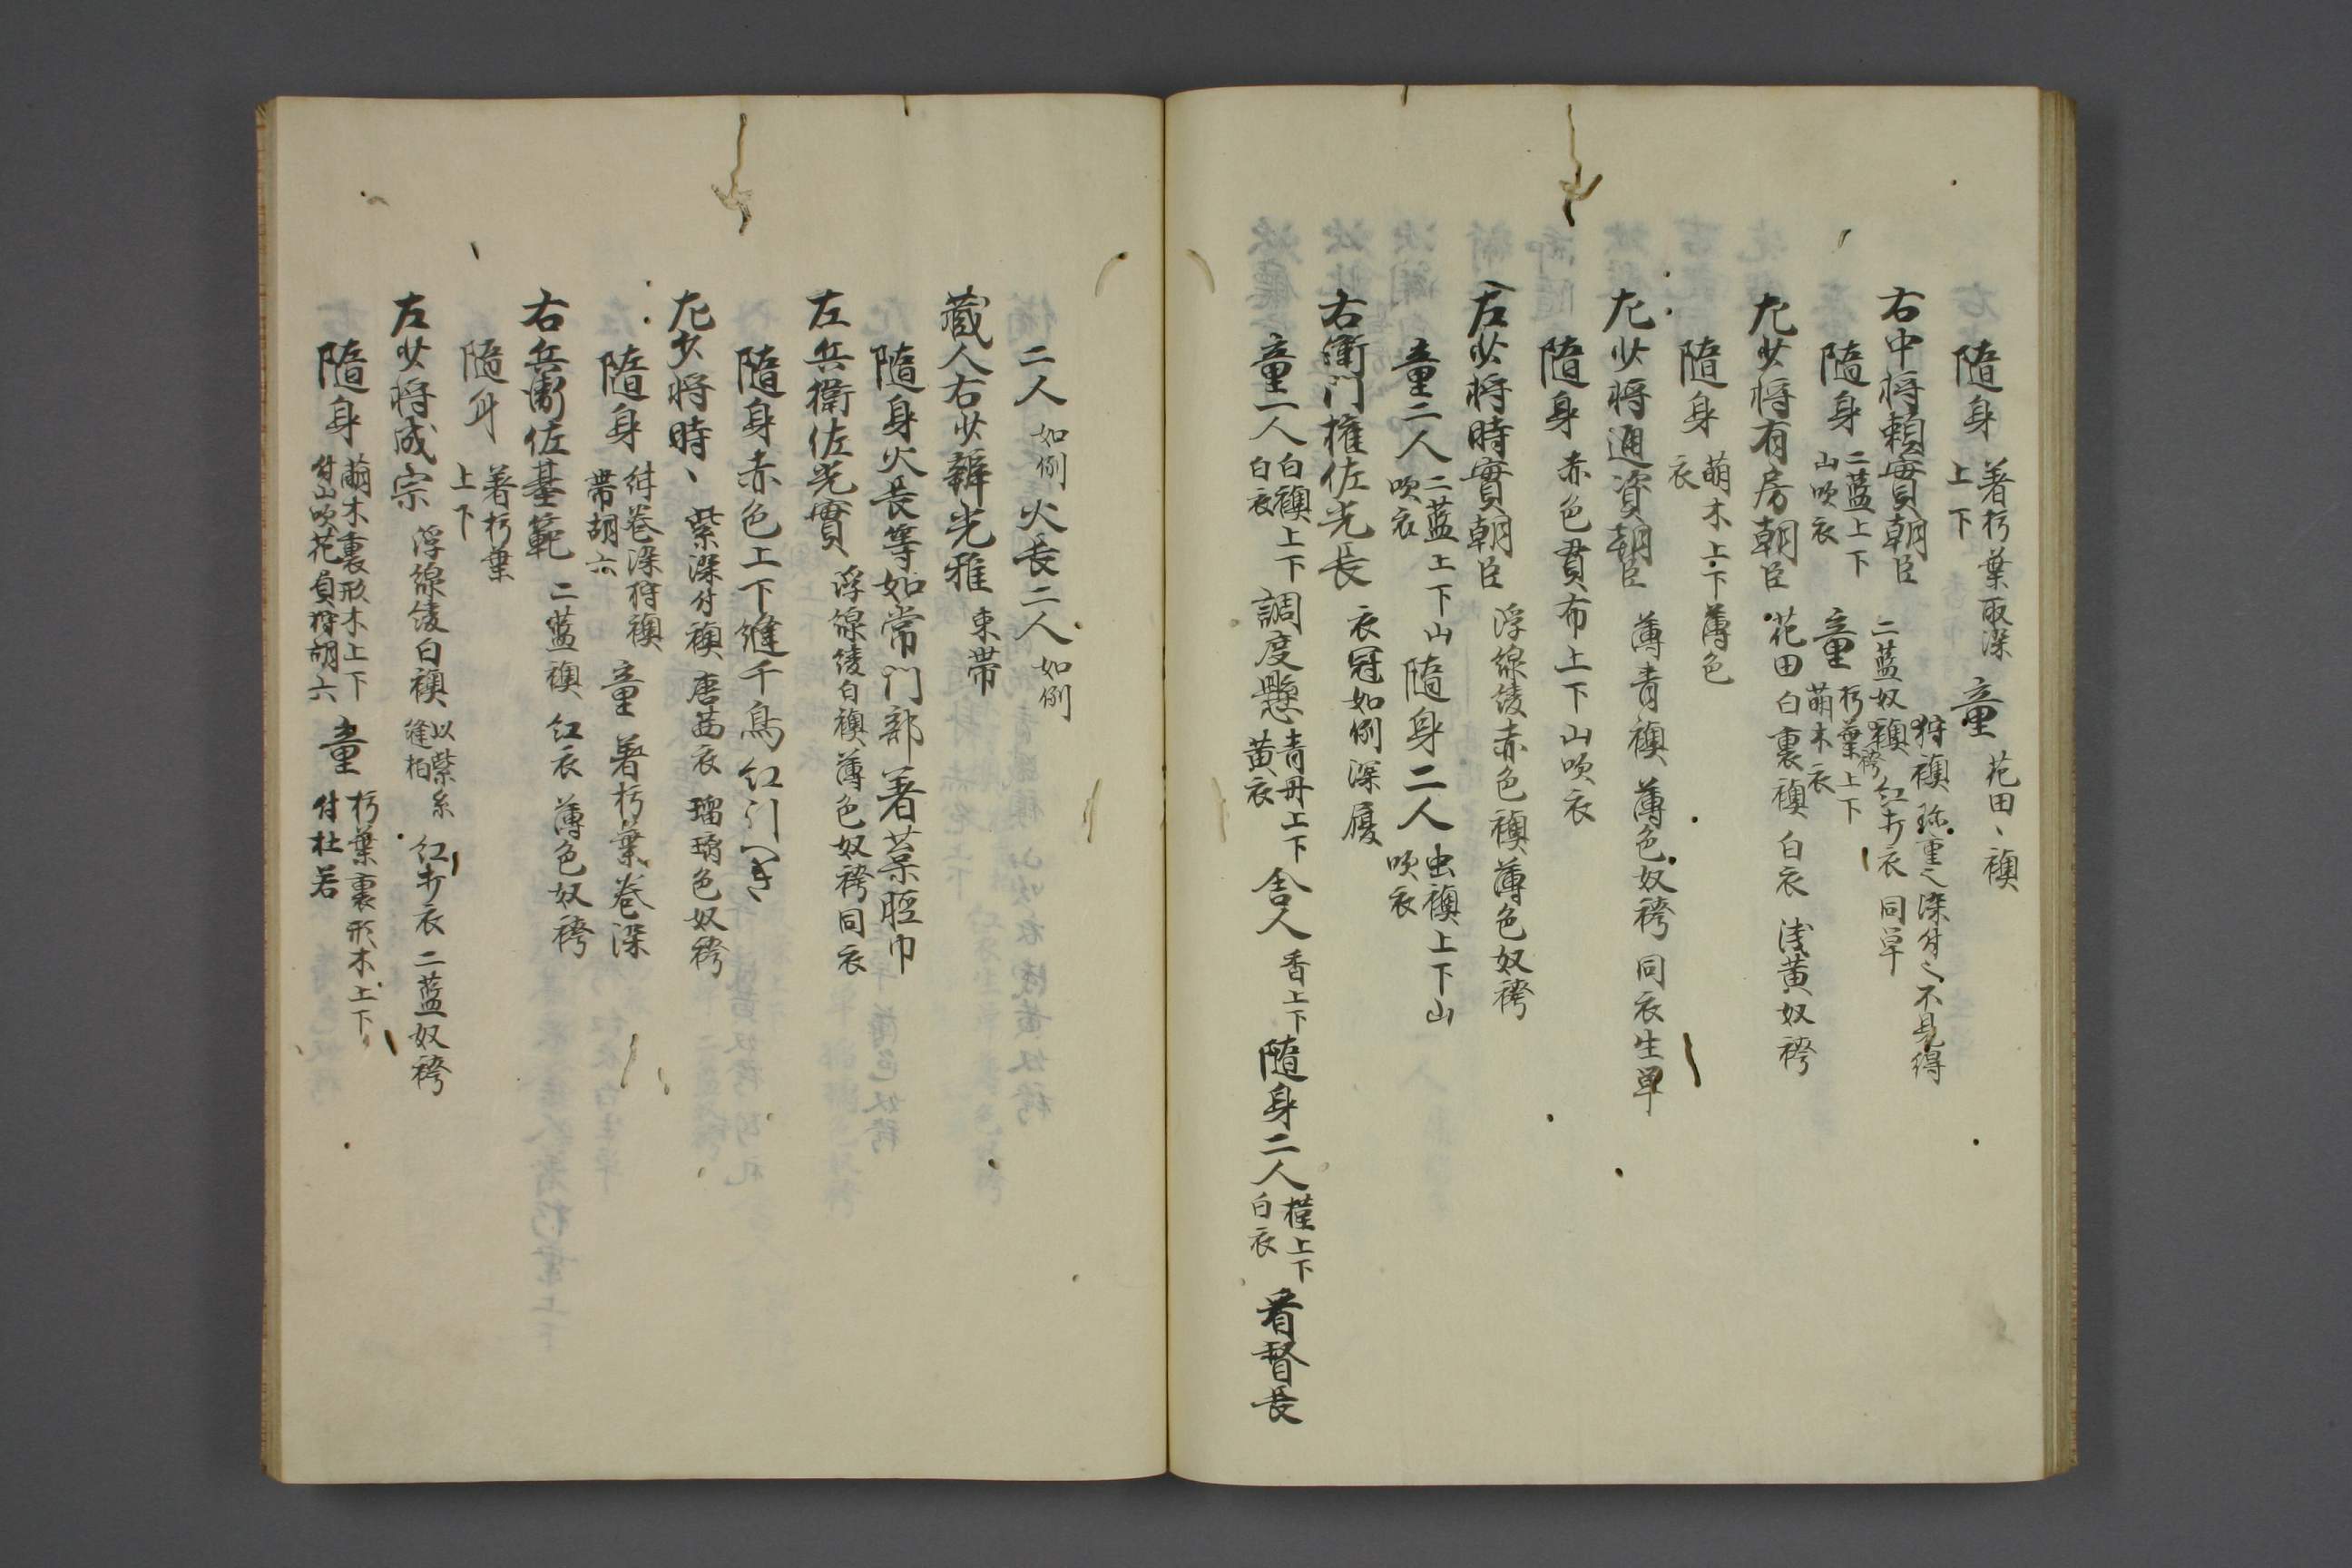 隨身 著朽葉取深上下 童 花田ヽ襖
右中将頼實朝臣 二藍奴襖 狩襖 紅打衣 同単
隨身 二藍上下山吹衣 童 朽葉上下萌木衣
左少将有房朝臣 花田白裏襖 白衣 浅黄奴袴
隨身 萌木上下薄色衣
左少将通資朝臣 薄青襖 薄色奴袴 同衣生単
隨身 赤色貫布上下山吹衣
右少将時實朝臣 浮線綾赤色襖薄色奴袴
童二人 二藍上下山吹衣 隨身二人 虫襖上下山吹衣
右衛門權佐光長 衣冠如例深履
童一人 白襖上下白衣 調度懸 青丹上下黄衣 舎人 香上下 隨身二人 上下白衣 看督長
二人 如例 火長二人 如例
蔵人右少辨光雅 束帯
隨身火長等如常門部著葉脛巾
左兵衛佐光實 浮線綾白襖薄色奴袴同衣
隨身赤色上下縫千鳥紅引へき
左少将時ヽ 紫深付襖 唐茜衣 瑠璃色奴袴
隨身 紺巻深狩襖帯胡六 童 著朽葉巻深
右兵衛佐基範 二藍襖 紅衣 薄色奴袴
隨身 著朽葉上下
左少将成宗 浮線綾白襖 以紫糸縫柏 紅打衣 二藍奴袴
隨身 萠木裏形木上下付山吹花負狩胡六 童 朽葉裏形木上下付杜若